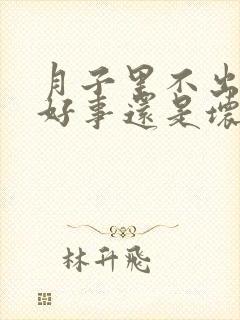 月子里不出
好事還是壞
林升飛